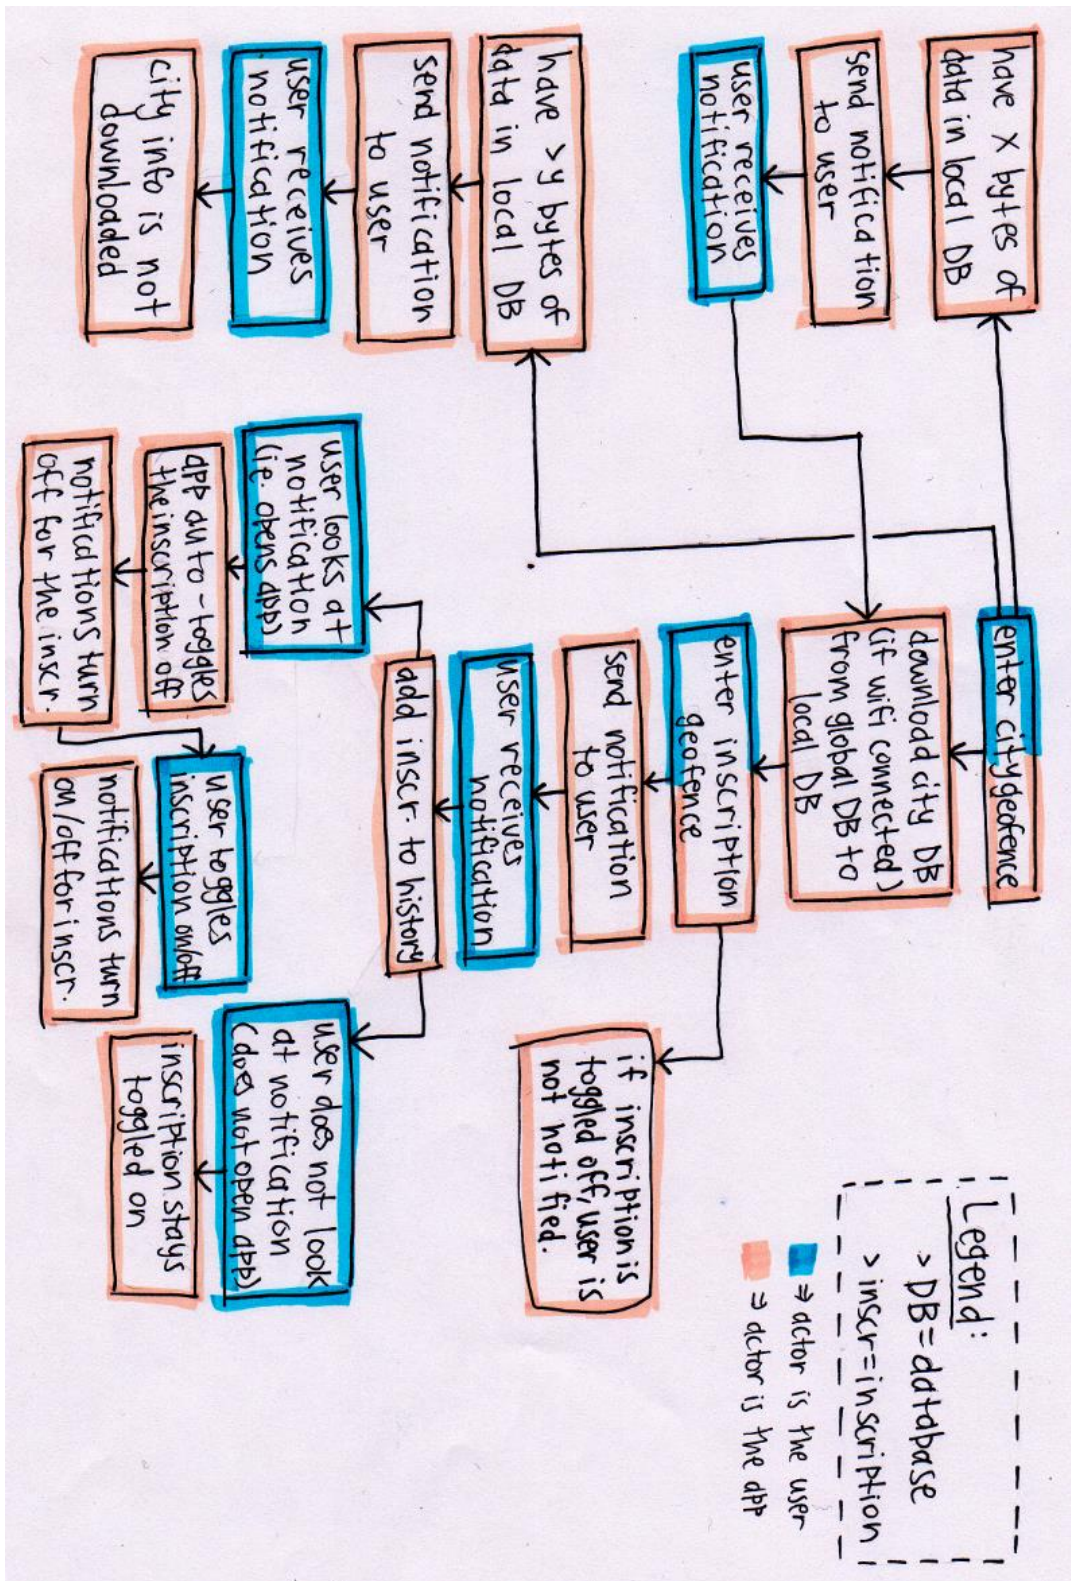 enter city geofence
have X bytes of
data in local DB
send notification
to user
user receives
notification
have >y bytes of
data in local DB
send notification
to user
user receives
notification
city info is not
downloaded
download city DB
(if wifi connected)
from global DB to
local DB
enter inscription
geofence
send notification
to user
user receives
notification
add inscr. to history
if inscription is
toggled off, user is
not notified.
user looks at
notification
(i.e. opens app)
app auto-toggles
the inscription off
notifications turn
off for the inscr.
user toggles
inscription on/off
notifications turn
on/off for inscr.
user does not look
at notification
(does not open app)
inscription stays
toggled on
Legend:
> DB = database
> inscr = inscription
⇒ actor is the user
⇒ actor is the app